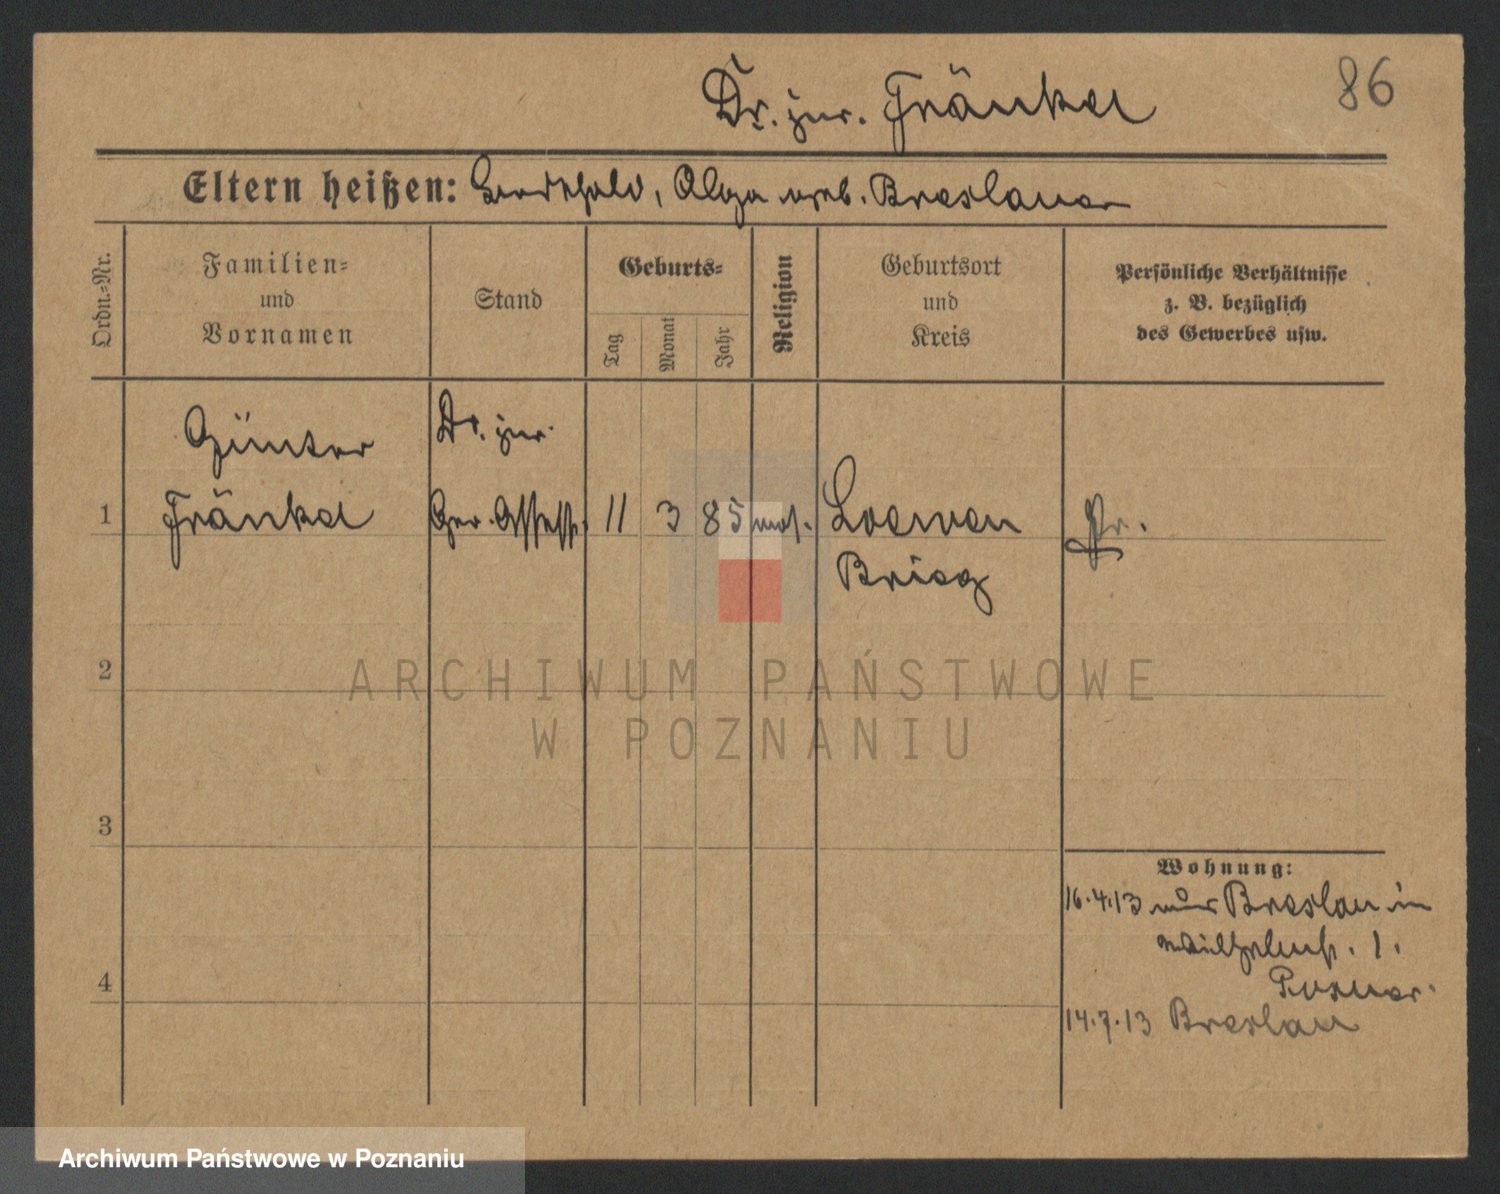 86
Dr. jur. Fränkel
Eltern heißen: Berthold, Olga geb. Breslauer
Ordn.-Nr.
Familien-
und
Vornamen
Stand
Geburts-
Tag
Monat
Jahr
Religion
Geburtsort
und
Kreis
Persönliche Verhältnisse
z. B. bezüglich
des Gewerbes usw.
Günter
Dr. jur.
1 Fränkel Ger. Assess. 11 3 85 mos. Loewen Pr.
Brieg
2
ARCHIWUM PAŃSTWOWE
W POZNANIU
3
Wohnung:
16.4.13 Breslau in
Wilhelmstr. 1.
4
14.7.13 Breslau
Archiwum Państwowe w Poznaniu